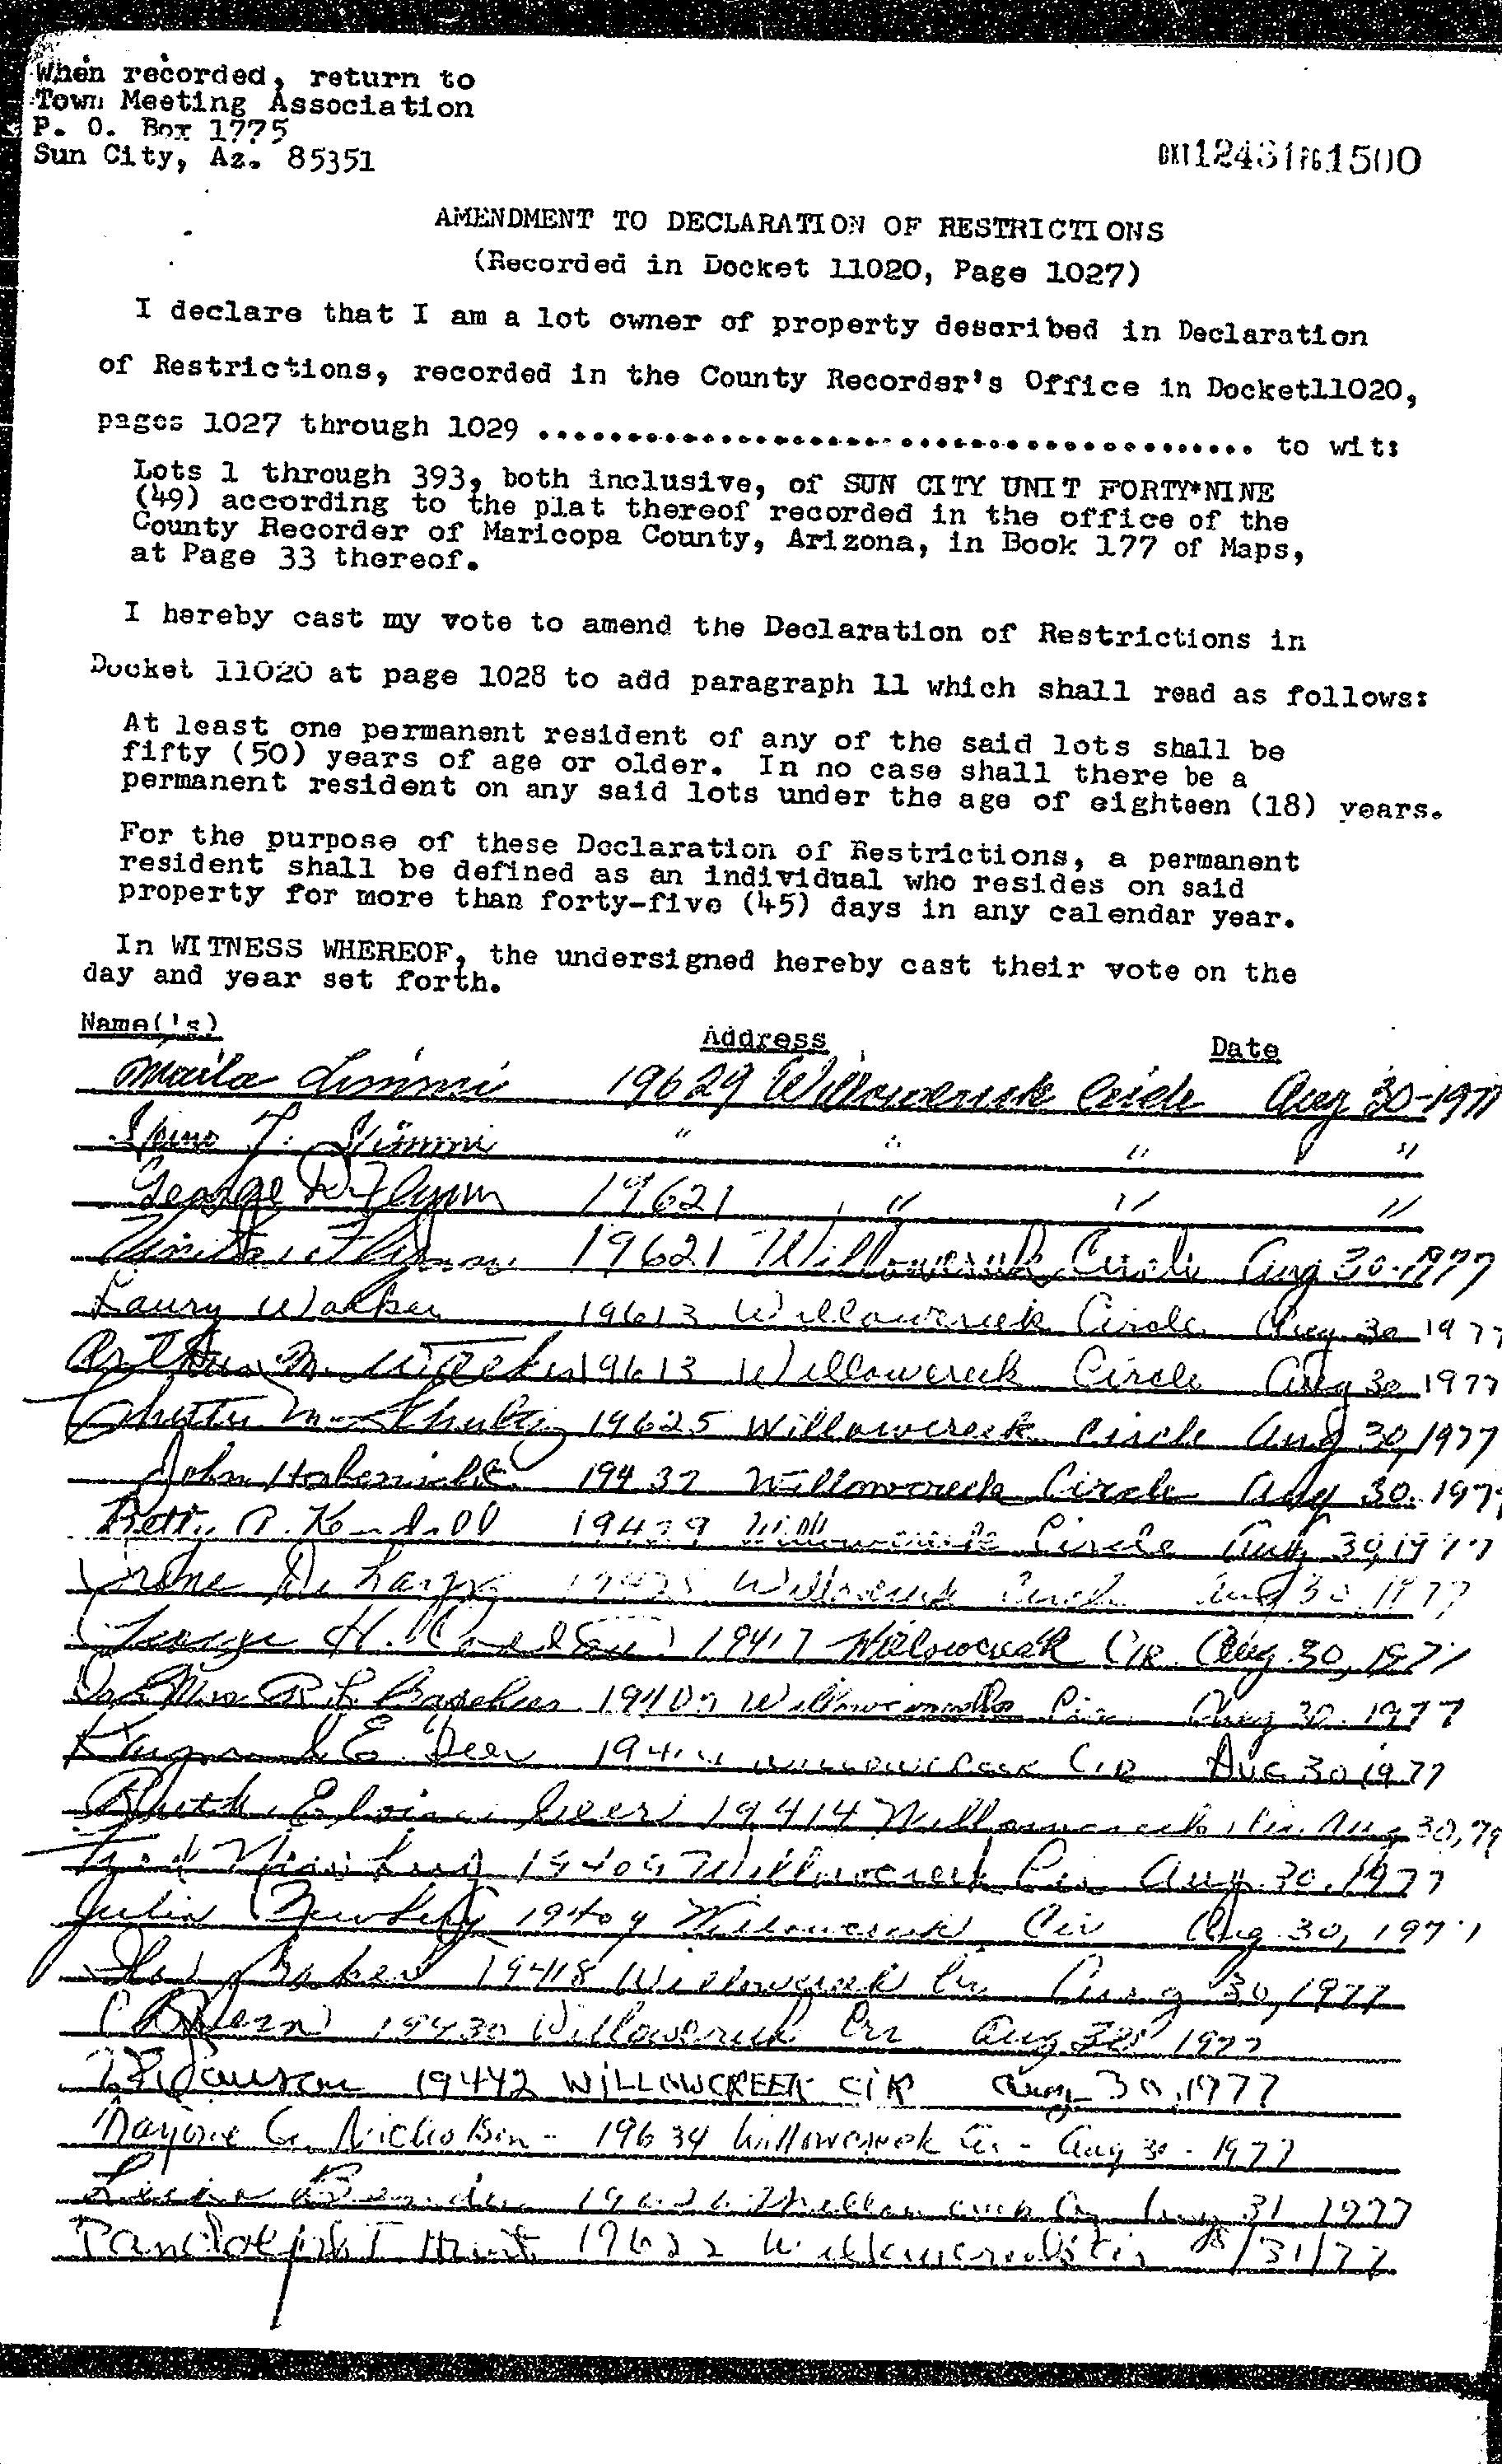 When recorded, return to
Town Meeting Association
P. O. Box 1775
Sun City, Az. 85351
DKT 12431 PG 1500
AMENDMENT TO DECLARATION OF RESTRICTIONS
(Recorded in Docket 11020, Page 1027)
I declare that I am a lot owner of property described in Declaration
of Restrictions, recorded in the County Recorder's Office in Docket11020,
pages 1027 through 1029 ........................................ to wit:
Lots 1 through 393, both inclusive, of SUN CITY UNIT FORTY*NINE
(49) according to the plat thereof recorded in the office of the
County Recorder of Maricopa County, Arizona, in Book 177 of Maps,
at Page 33 thereof.
I hereby cast my vote to amend the Declaration of Restrictions in
Docket 11020 at page 1028 to add paragraph 11 which shall read as follows:
At least one permanent resident of any of the said lots shall be
fifty (50) years of age or older. In no case shall there be a
permanent resident on any said lots under the age of eighteen (18) years.
For the purpose of these Declaration of Restrictions, a permanent
resident shall be defined as an individual who resides on said
property for more than forty-five (45) days in any calendar year.
In WITNESS WHEREOF, the undersigned hereby cast their vote on the
day and year set forth.
Name('s) Address Date
19629 Willowcreek Circle Aug 30-1977
" " " "
George Flynn 19621 " " "
Flynn 19621 Willowcreek Circle Aug 30-1977
Laury Walker 19613 Willowcreek Circle Aug 30 1977
Arthur M. Walker 19613 Willowcreek Circle Aug 30 1977
19625 Willowcreek Circle Aug 30, 1977
John 19437 Willowcreek Circle Aug 30. 1977
Betty A. Kendall 19429 Willowcreek Circle Aug 30, 1977
Irene Willowcreek Circle Aug 30, 1977
George H. 19417 Willowcreek Cir. Aug. 30, 1977
Willowcreek Cir Aug 30. 1977
Raymond E. Deer 19414 Willowcreek Cir Aug 30 1977
Ruth Eloise Deer 19414 Willowcreek Cir. Aug 30, 79
19409 Willowcreek Cir Aug. 30. 1977
Julia 19409 Willowcreek Cir Aug. 30, 1977
Baker 19418 Willowcreek Cir Aug 30, 1977
19430 Willowcreek Cir Aug 30 1977
19442 WILLOWCREEK CIR Aug 30, 1977
Marjorie G. Nicholson - 19634 Willowcreek Cir - Aug 30 - 1977
31 1977
Hunt 19622 Willowcreek Cir 8/31/77